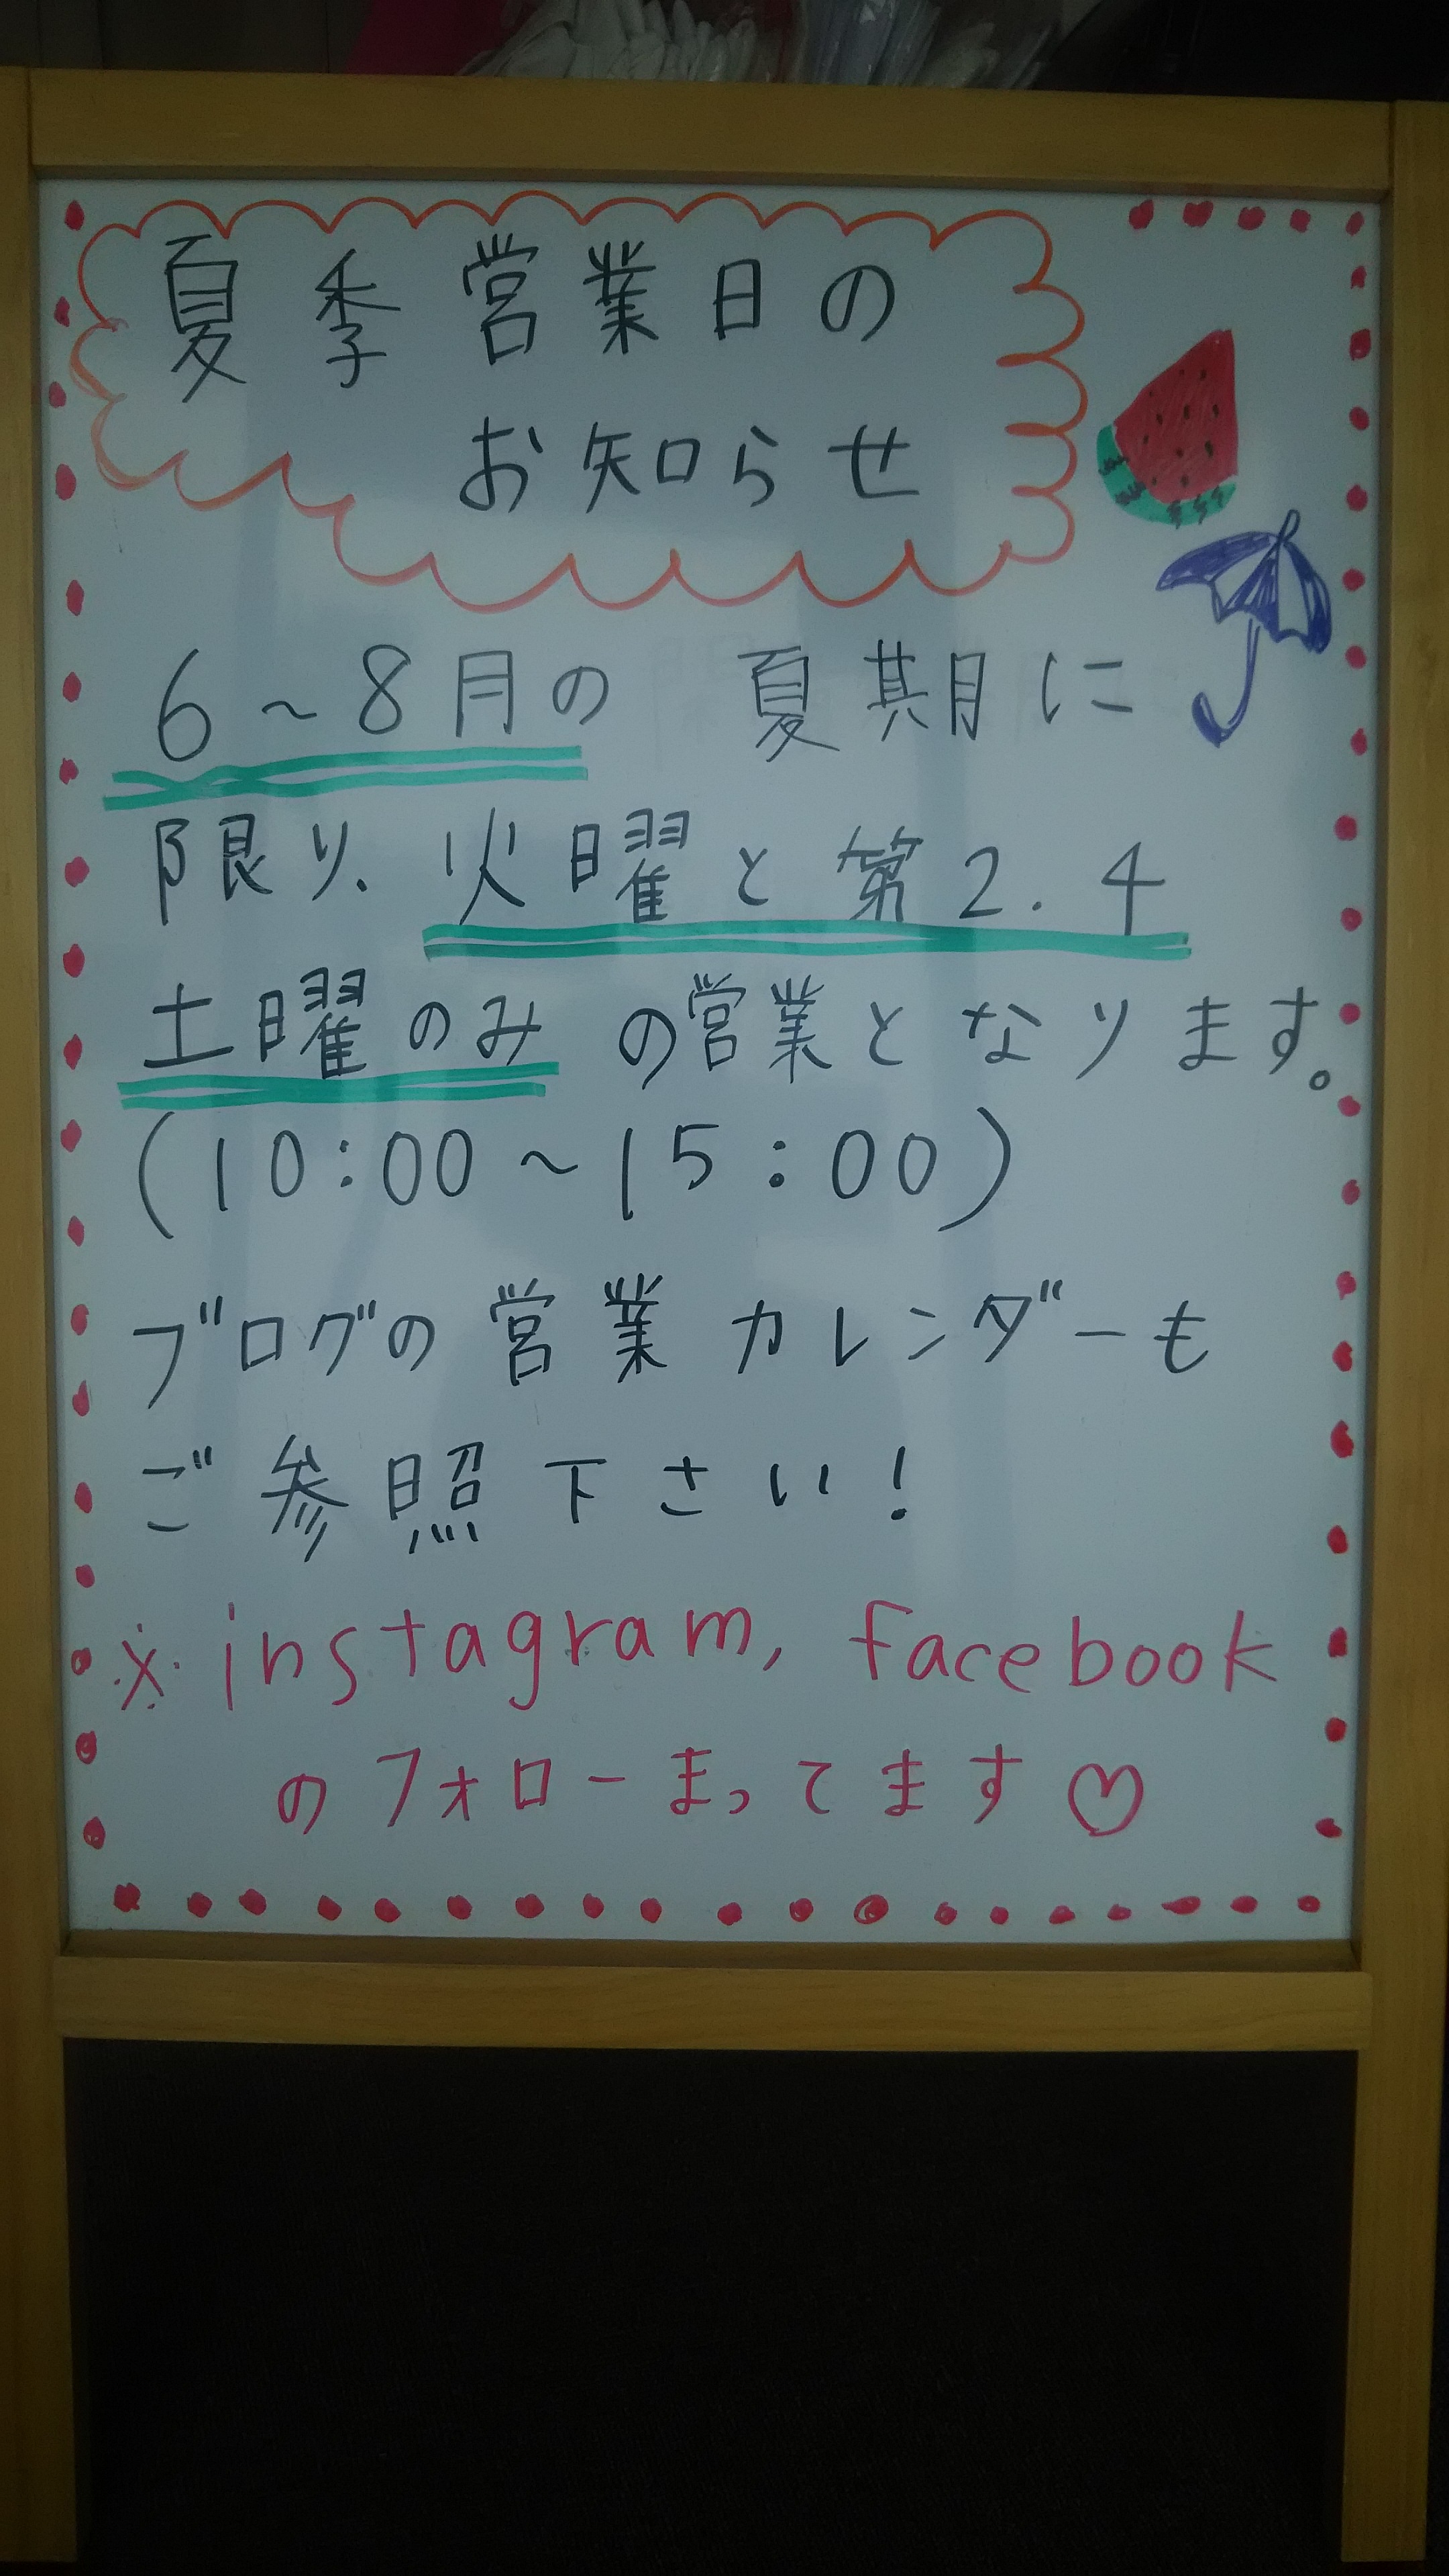 夏季営業日の
お知らせ
6～8月の 夏期に
限り、火曜と第2.4
土曜のみの営業となります。
(10:00～15:00)
ブログの営業カレンダーも
ご参照下さい！
※instagram, facebook
のフォローまってます♡